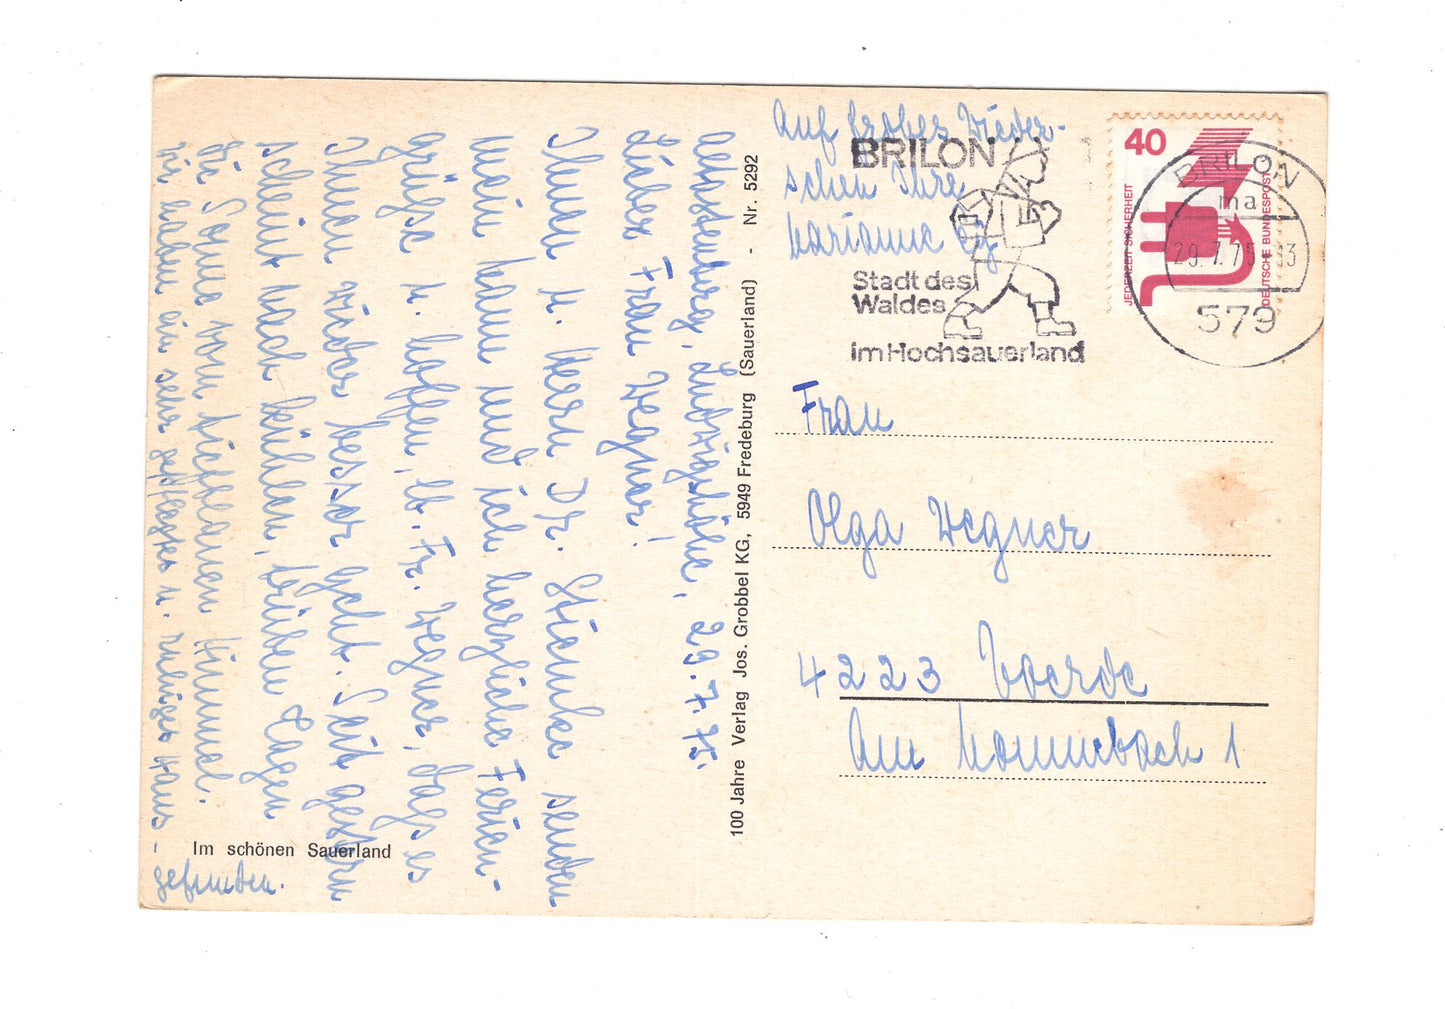 Messenberg, Ludwigshöhe, 29.7.75.
Lieber Frau Wegner!
Ihnen u. Herrn Dr. senden
mein Mann und ich herzliche Ferien-
grüße u. hoffen, lb. Fr. Wegner, daß es
Ihnen wieder besser geht. Seit gestern
scheint nach kühlen, trüben Tagen
die Sonne vom tiefblauen Himmel.
Wir haben ein sehr gepflegtes u. ruhiges Haus
gefunden.
Auf frohes Wieder-
sehen Ihre
Marianne
Im schönen Sauerland
100 Jahre Verlag Jos. Grobbel KG, 5949 Fredeburg (Sauerland) - Nr. 5292
BRILON
Stadt des
Waldes
im Hochsauerland
40
JEDERZEIT SICHERHEIT
DEUTSCHE BUNDESPOST
BRILON
ma
29.7.75-13
579
Frau
Olga Wegner
4223 Voerde
Am Mommbach 1